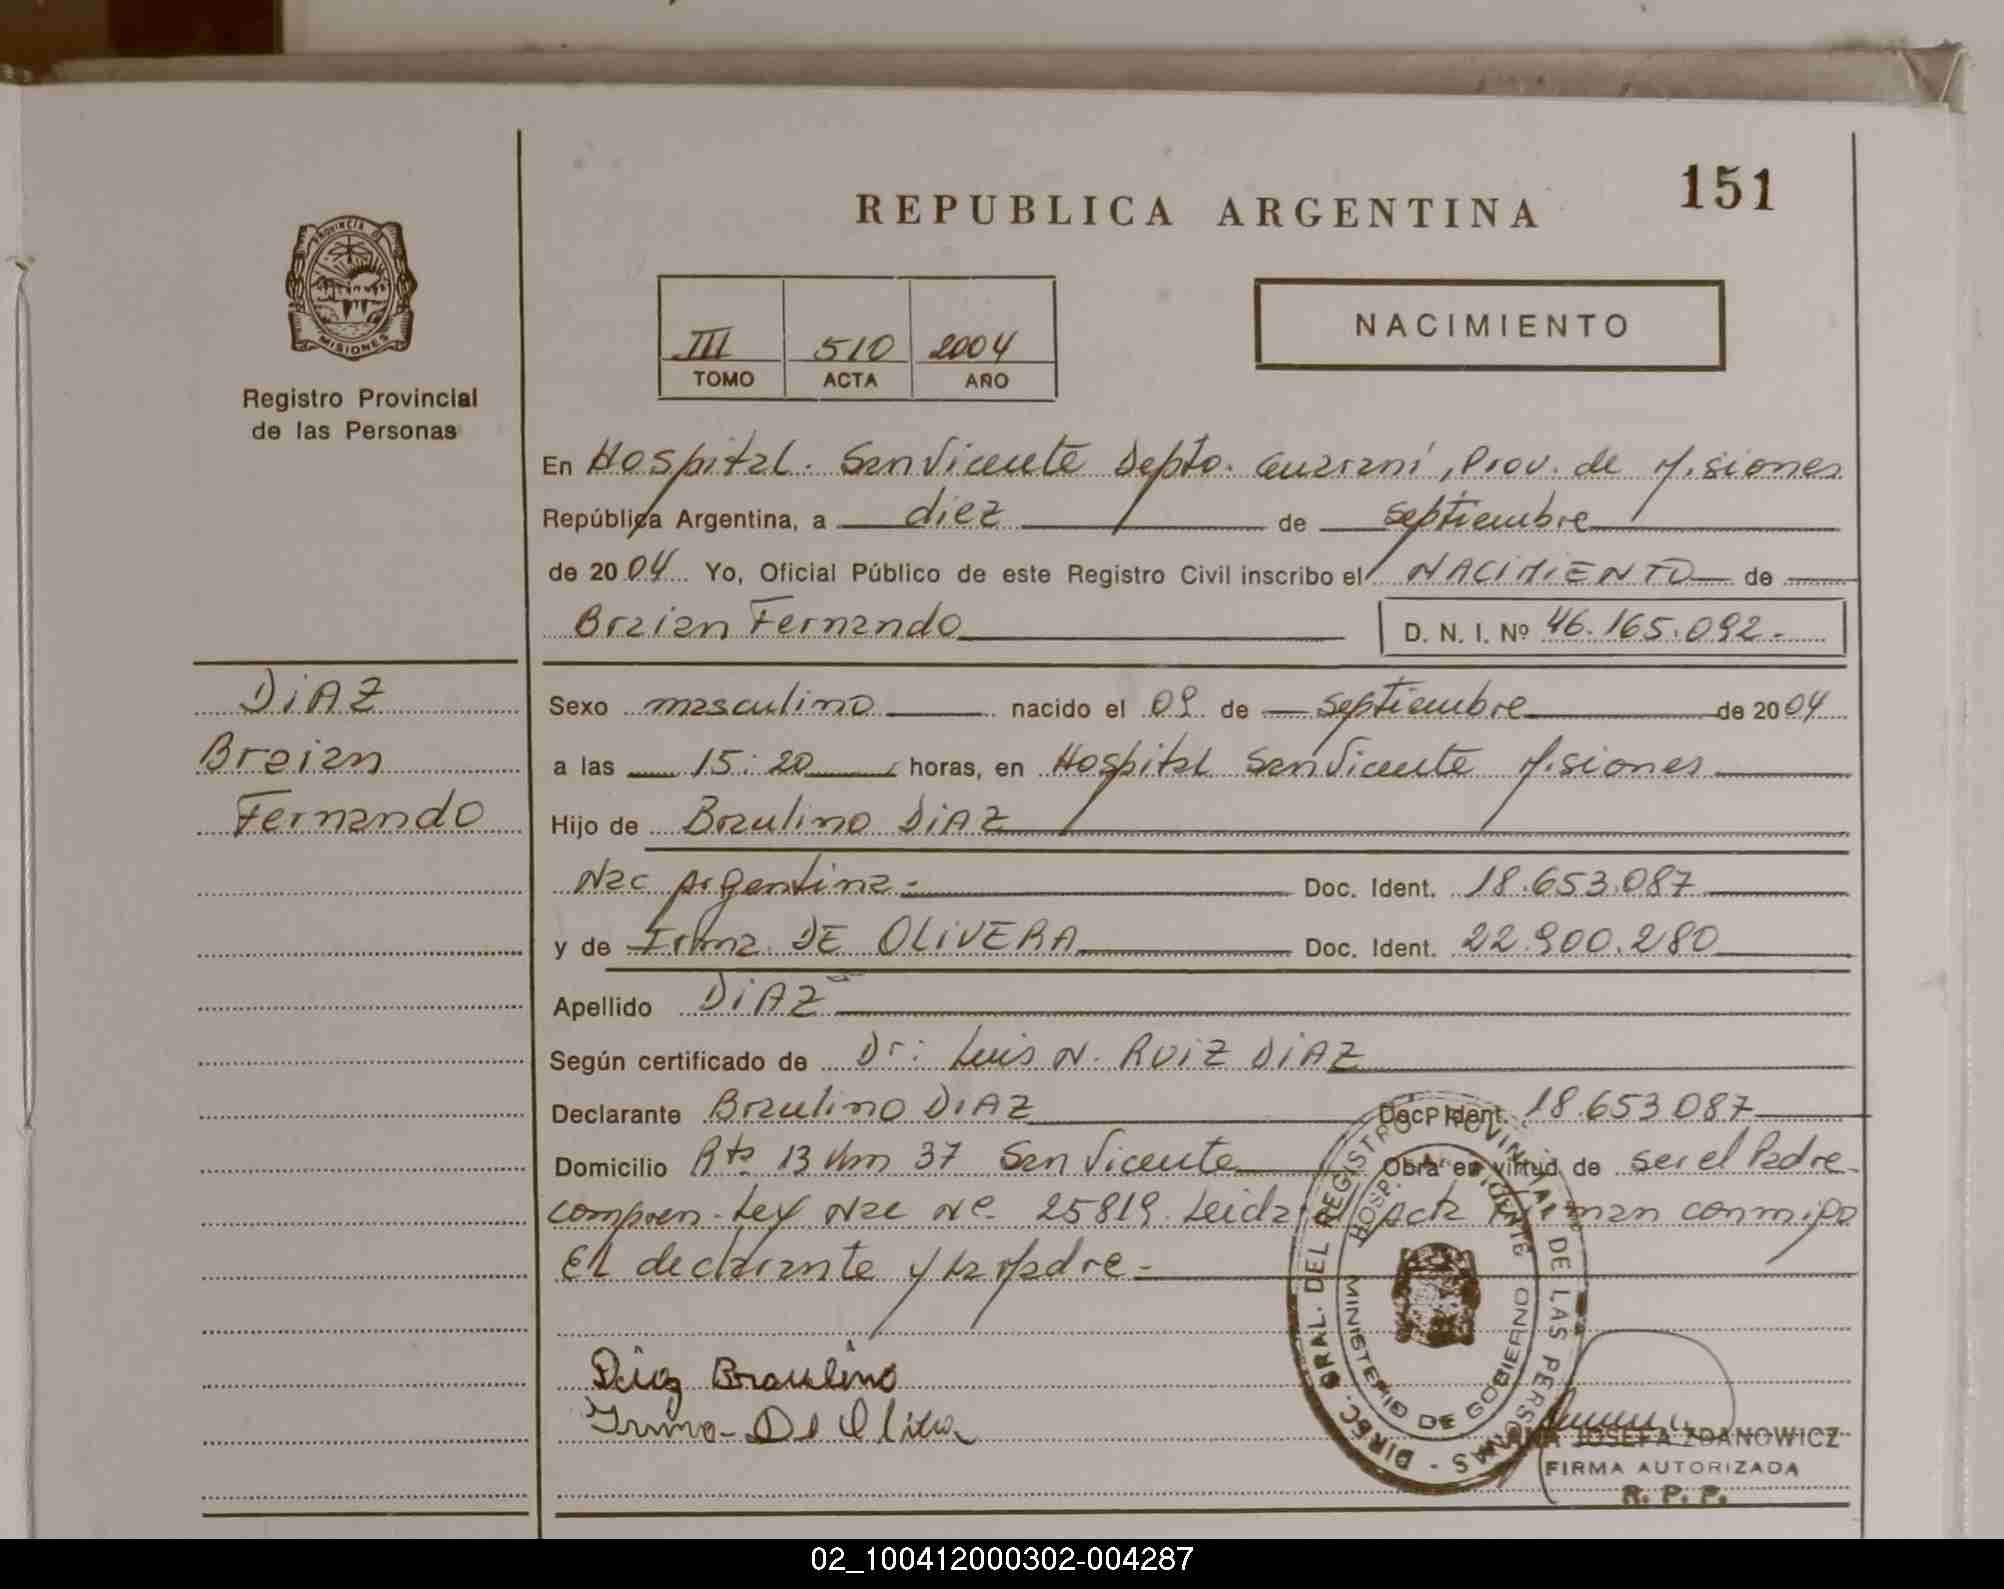 151
REPUBLICA ARGENTINA
PROVINCIA DE
MISIONES
Registro Provincial
de las Personas
III 510 2004
TOMO ACTA AÑO
NACIMIENTO
En Hospital. San Vicente Depto. Guaraní, Prov. de Misiones
República Argentina, a diez de septiembre
de 2004 Yo, Oficial Público de este Registro Civil inscribo el NACIMIENTO de
Braian Fernando D. N. I. Nº 46.165.092.-
DiAZ
Braian
Fernando
Sexo masculino nacido el 09 de septiembre de 2004
a las 15:20 horas, en Hospital San Vicente Misiones
Hijo de Braulino DiAZ
Nac Argentina.- Doc. Ident. 18.653.087
y de Irma DE OLiVERA Doc. Ident. 22.900.280
Apellido DiAZ
Según certificado de Dr: Luis N. RUiZ DiAZ
Declarante Braulino DiAZ Doc. Ident. 18.653.087
Domicilio Rta 13 Km 37 San Vicente Obra en virtud de ser el Padre.
compren. Ley Nac Nº 25819. Leida el Acta Firman conmigo
El declarante y la Madre.-
Diaz Braulino
Irma De Olivera
DIREC. GRAL. DEL REGISTRO PROVINCIAL DE LAS PERSONAS -
HOSP. SAN VICENTE
MINISTERIO DE GOBIERNO
ANA JOSEFA ZDANOWICZ
FIRMA AUTORIZADA
R. P. P.
02_100412000302-004287